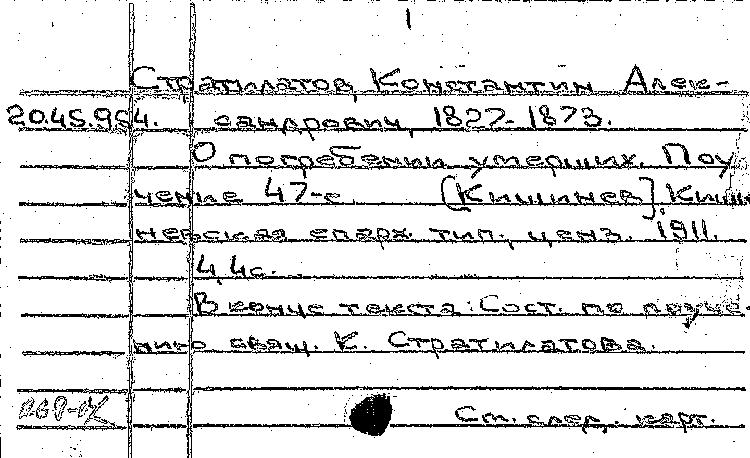 1
Стратилатов, Константин Алек-
20.45.954. сандрович, 1827-1873.
О погребении умерших. Поу
чение 47-е. [Кишинев], Киши
невская епарх. тип., ценз. 1911.
4, 4с.
В конце текста: Сост. по поуче-
нию свящ. К. Стратилатова.
См. след. карт.